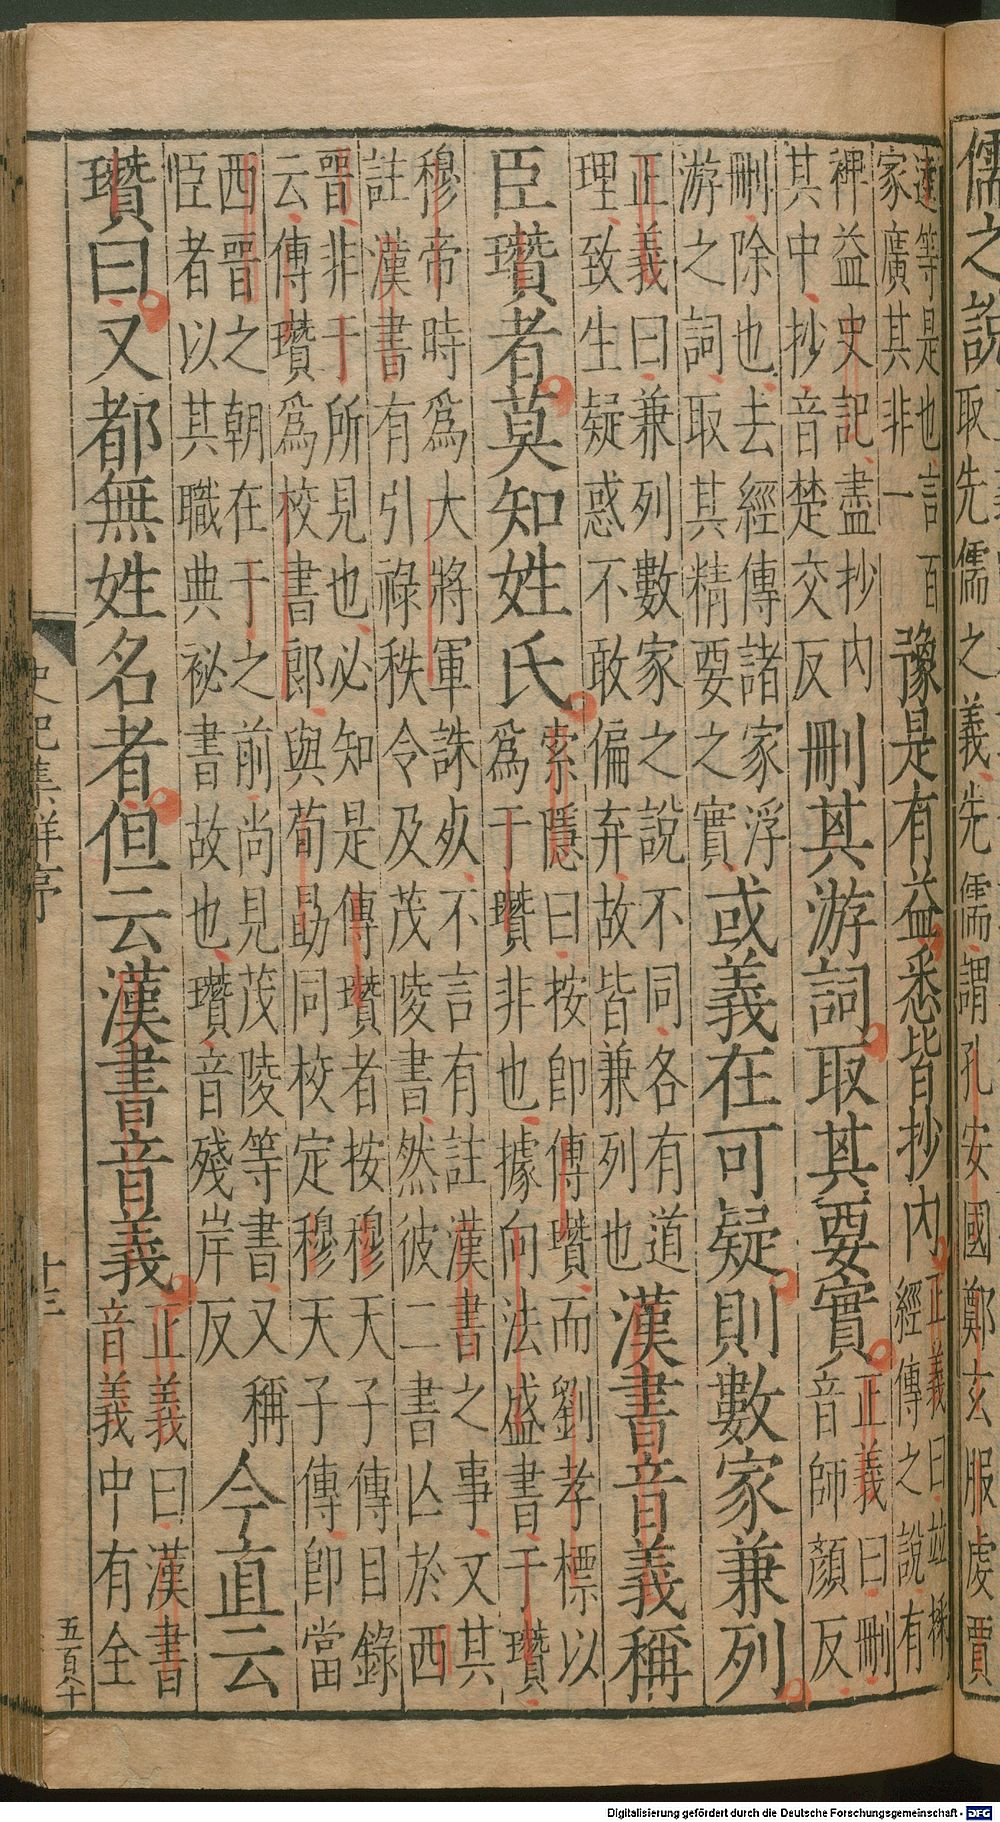 儒之說取先儒之義先儒謂孔安國鄭玄服虔賈
逵等是也言百
家廣其非一
豫是有益悉皆抄內
正義曰並採
經傳之說有
裨益史記盡抄內
其中抄音楚交反
刪其游詞取其要實
正義曰刪
音師顏反
刪除也去經傳諸家浮
游之詞取其精要之實
或義在可疑則數家兼列
正義曰兼列數家之說不同各有道
理致生疑惑不敢偏弃故皆兼列也
漢書音義稱
臣瓚者莫知姓氏
索隱曰按卽傅瓚而劉孝標以
爲于瓚非也據向法盛書于瓚
穆帝時爲大將軍誅死不言有註漢書之事又其
註漢書有引祿秩令及茂陵書然彼二書亡於西
晉非于所見也必知是傅瓚者按穆天子傳目錄
云傅瓚爲校書郎與荀勗同校定穆天子傳卽當
西晉之朝在于之前尚見茂陵等書又稱
臣者以其職典祕書故也瓚音殘岸反
今直云
瓚曰又都無姓名者但云漢書音義
正義曰漢書
音義中有全
史記集解序
十三
五百八十
Digitalisierung gefördert durch die Deutsche Forschungsgemeinschaft - DFG